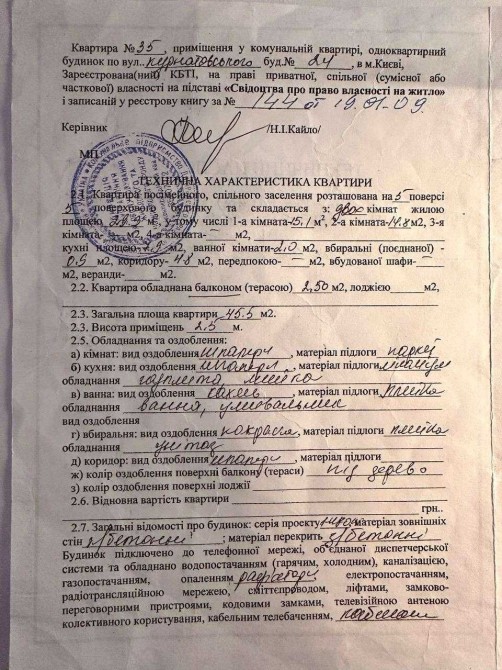 Квартира № 35, приміщення у комунальній квартирі, одноквартирний
будинок по вул. Курнатовського буд.№ 24, в м.Києві,
Зареєстрована(ний) КБТІ, на праві приватної, спільної (сумісної або
часткової) власності на підставі «Свідоцтва про право власності на житло»
і записаній у реєстрову книгу за № 144 от 19.01.09.
Керівник /Н.І.Кайло/
МП
ТЕХНІЧНА ХАРАКТЕРИСТИКА КВАРТИРИ
2.1. Квартира посімейного, спільного заселення розташована на 5 поверсі
5 поверхового будинку та складається з: двох кімнат жилою
площею м², у тому числі 1-а кімната- 15.1 м², 2-а кімната- 14.8 м2, 3-я
кімната- — м2, 4-а кімната- — м2,
кухні площею м2, ванної кімнати- 2.0 м2, вбиральні (поєднаної) -
0.9 м2, коридору- 4.8 м2, передпокою- — м2, вбудованої шафи- —
м2, веранди- м2.
2.2. Квартира обладнана балконом (терасою) 2,50 м2, лоджією м2,
2.3. Загальна площа квартири 45.5 м2.
2.3. Висота приміщень 2.5 м.
2.5. Обладнання та оздоблення:
а) кімнат: вид оздоблення шпалери, матеріал підлоги паркет
б) кухня: вид оздоблення шпалери, матеріал підлоги лінолеум
обладнання газплита, мийка
в) ванна: вид оздоблення кахель, матеріал підлоги плитка
обладнання ванна, умивальник
вид оздоблення
г) вбиральня: вид оздоблення покраска, матеріал підлоги плитка
обладнання унітаз
д) коридор: вид оздоблення шпалери, матеріал підлоги
ж) колір оздоблення поверхні балкону (тераси) під дерево
з) колір оздоблення поверхні лоджії
2.6. Відновна вартість квартири
грн..
2.7. Загальні відомості про будинок: серія проекту матеріал зовнішніх
стін з/бетонні; матеріал перекрить з/бетонні
Будинок підключено до телефонної мережі, об'єднаної диспетчерської
системи та обладнано водопостачанням (гарячим, холодним), каналізацією,
газопостачанням, опаленням радіатори електропостачанням,
радіотрансляційною мережею, сміттєпроводом, ліфтами, замково-
переговорними пристроями, кодовими замками, телевізійною антеною
колективного користування, кабельним телебаченням,